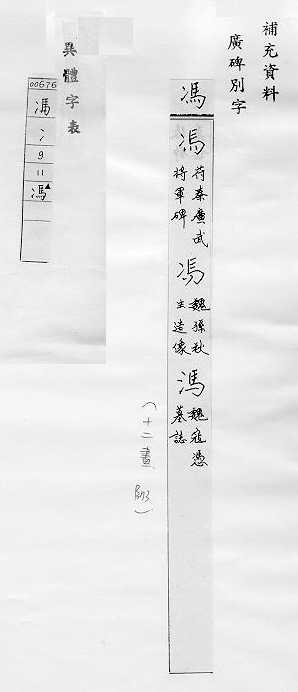 補充資料
廣碑別字
馮
馮
苻秦廣武
將軍碑
馮
魏孫秋
生造像
馮
魏寇憑
墓誌
(十二畫
異體字表
00676
馮
冫
9
11
馮